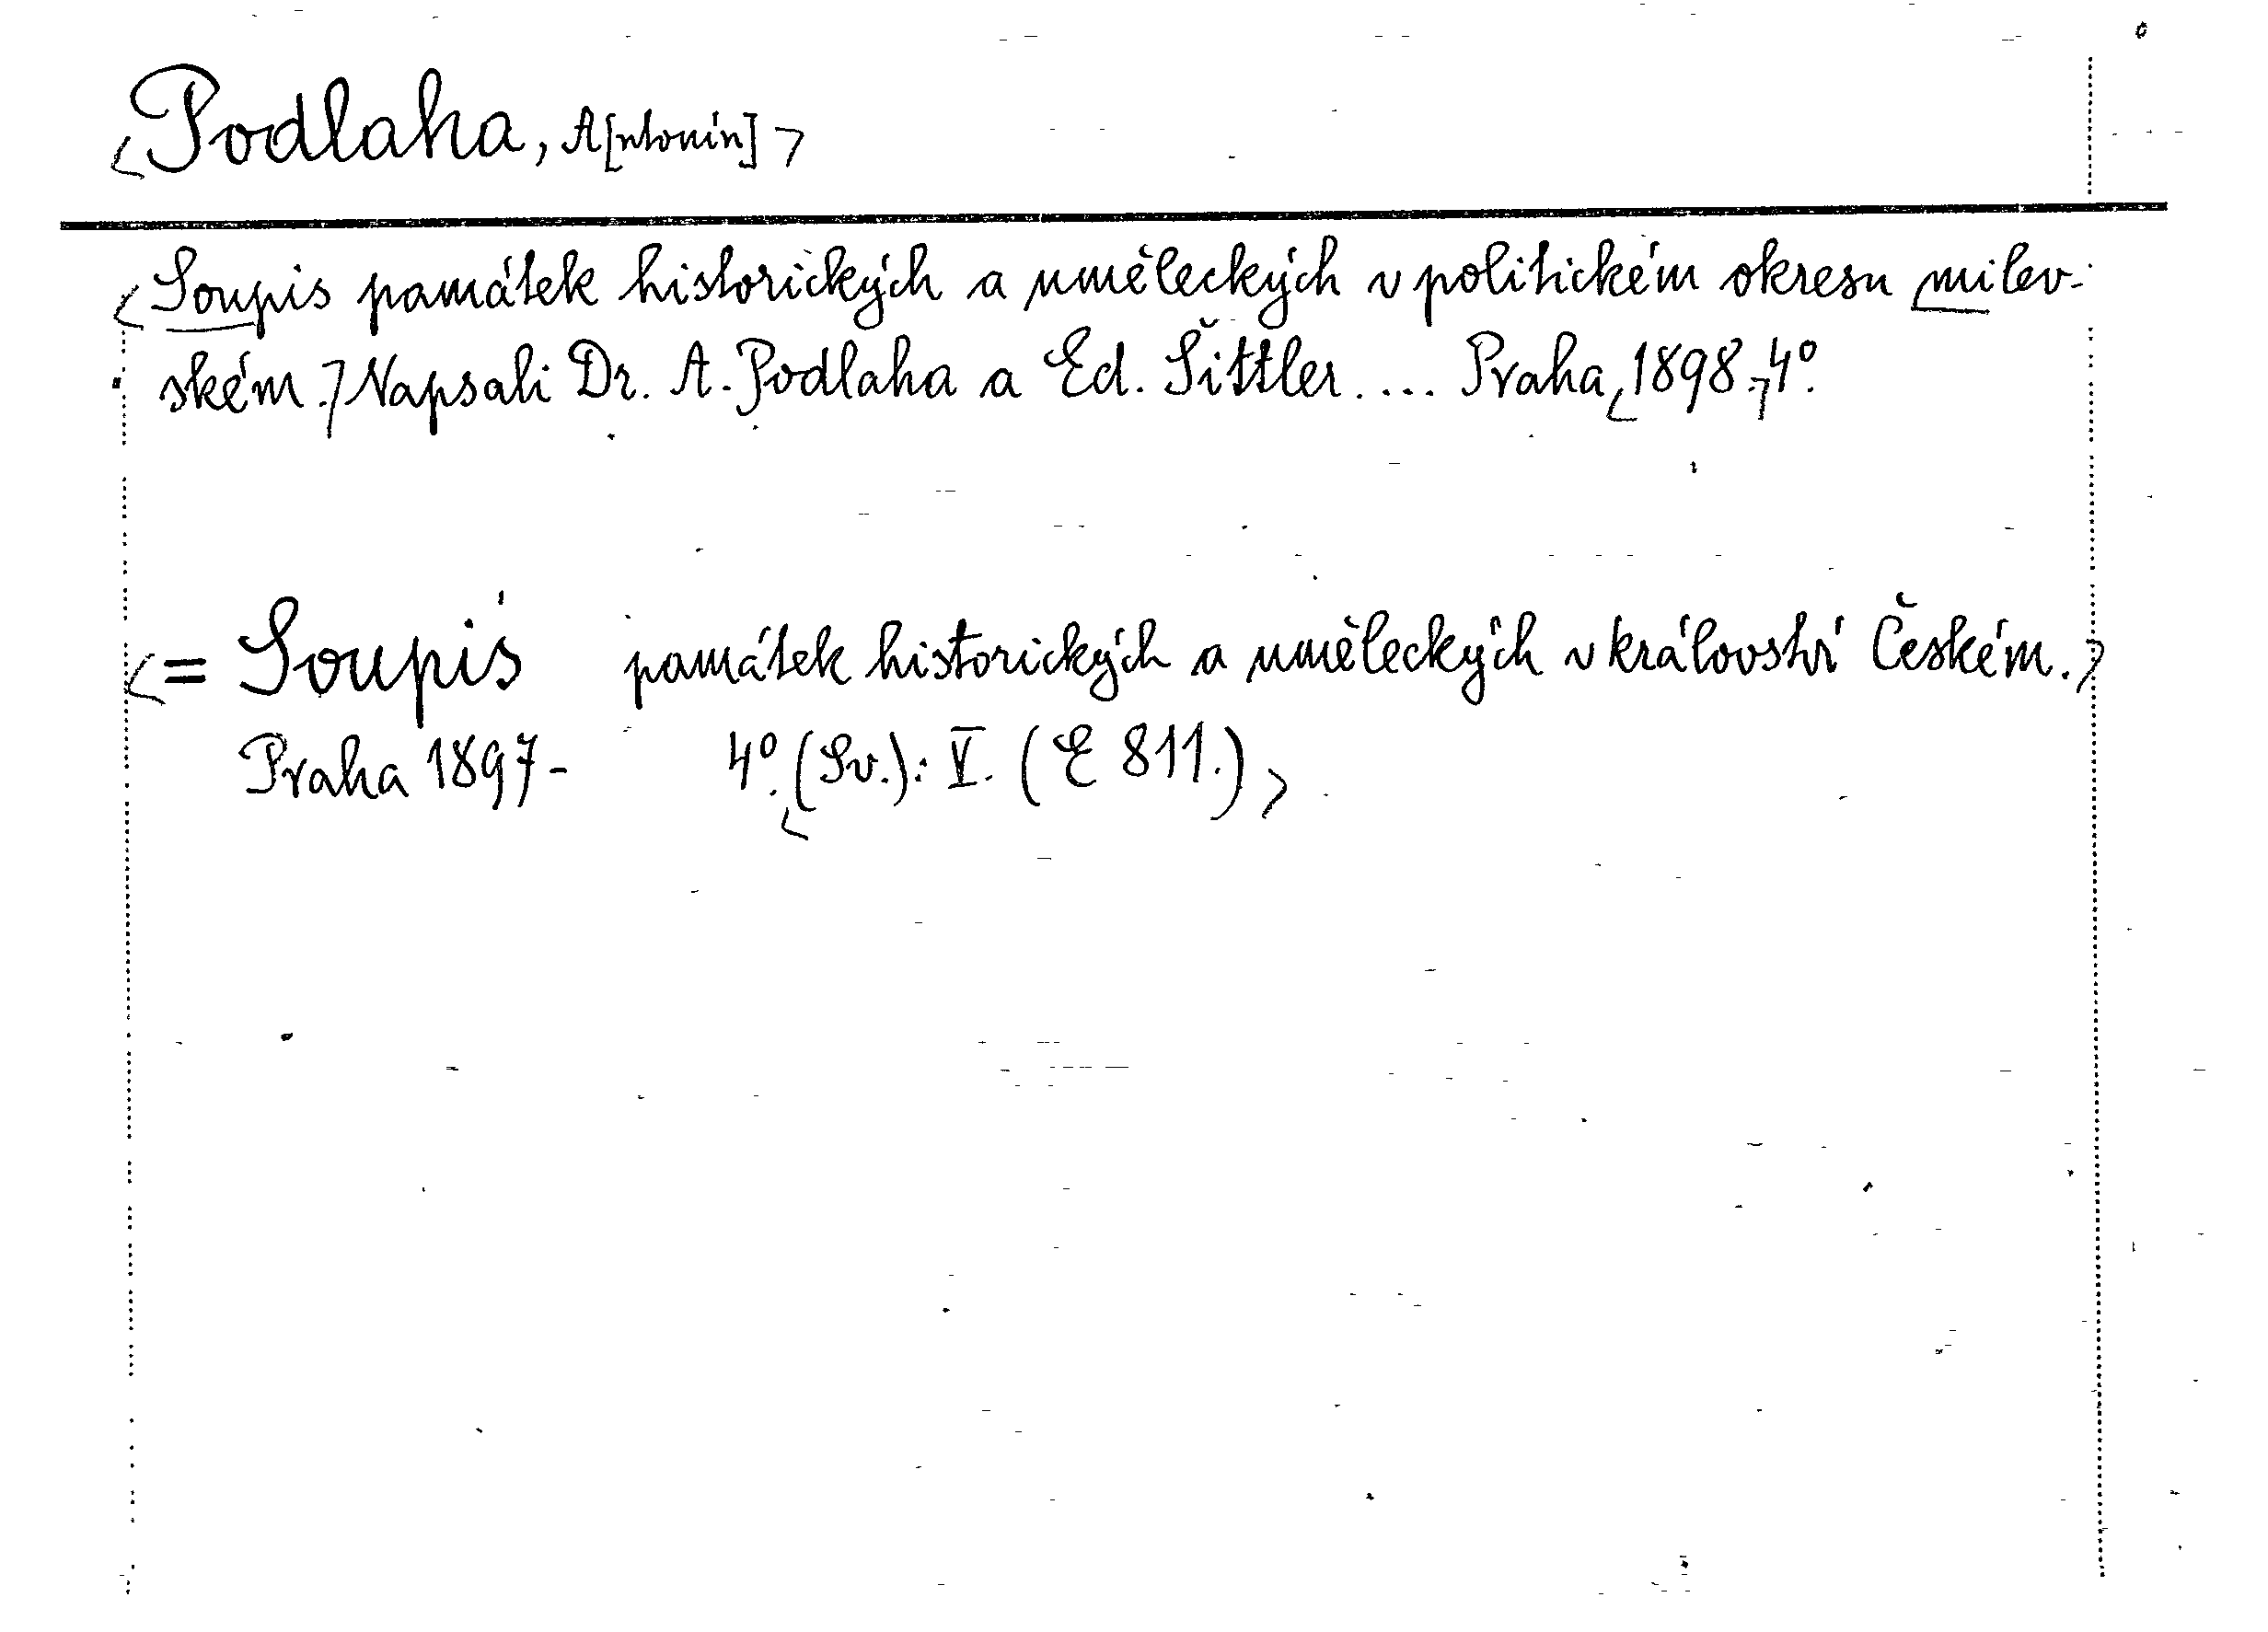 <Podlaha, A[ntonín]>
<Soupis památek historických a uměleckých v politickém okresu milev-
ském.> Napsali Dr. A. Podlaha a Ed. Šittler.... Praha,<1898.> 4°.
<= Soupis památek historických a uměleckých v království Českém.>
Praha 1897- 4°.<(Sv.): V. (E 811.)>